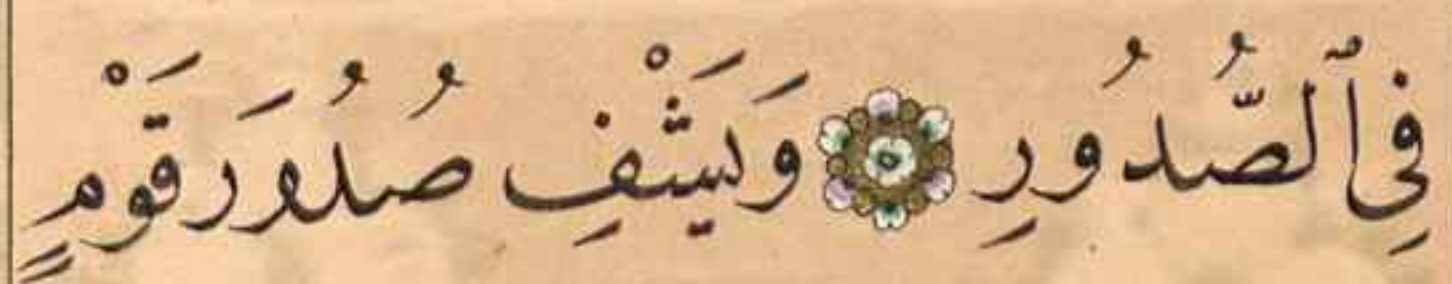 فِي ٱلصُّدُورِ وَيَشْفِ صُدُورَ قَوْمٍ